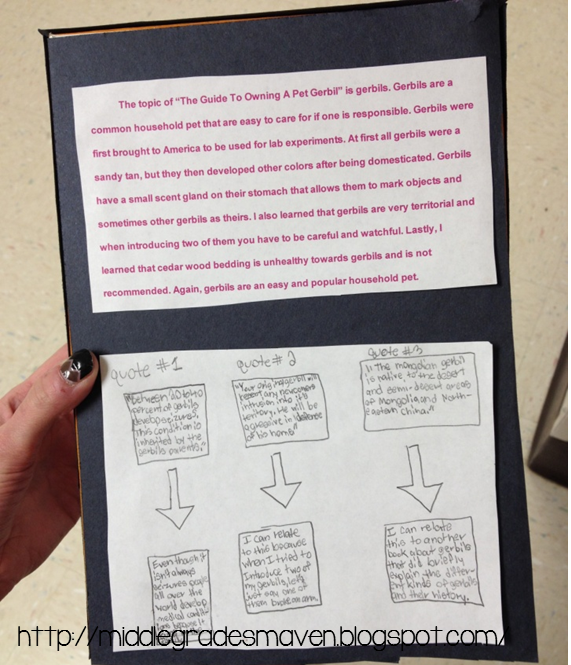 The topic of “The Guide To Owning A Pet Gerbil” is gerbils. Gerbils are a
common household pet that are easy to care for if one is responsible. Gerbils were
first brought to America to be used for lab experiments. At first all gerbils were a
sandy tan, but they then developed other colors after being domesticated. Gerbils
have a small scent gland on their stomach that allows them to mark objects and
sometimes other gerbils as theirs. I also learned that gerbils are very territorial and
when introducing two of them you have to be careful and watchful. Lastly, I
learned that cedar wood bedding is unhealthy towards gerbils and is not
recommended. Again, gerbils are an easy and popular household pet.
quote #1
"Between 20 to 40
percent of gerbils
develop seizures.
This condition is
inherited by the
gerbils parents."
quote #2
"Your original gerbil will
resent any newcomers
intrusion into its
territory. He will be
aggressive in defense
of his home."
quote #3
"The mongolian gerbil
is native to the desert
and semi-desert areas
of Mongolia and North-
eastern China."
Even though it
isn't always
seizures people
all over the
world develop
medical condit-
ions because
I can relate
to this because
when I tried to
introduce two of
my gerbils, lets
just say one of
them
I can relate
this to another
book about gerbils
that did briefly
explain the differ-
ent kinds of gerbils
and their history.
http://middlegradesmaven.blogspot.com/